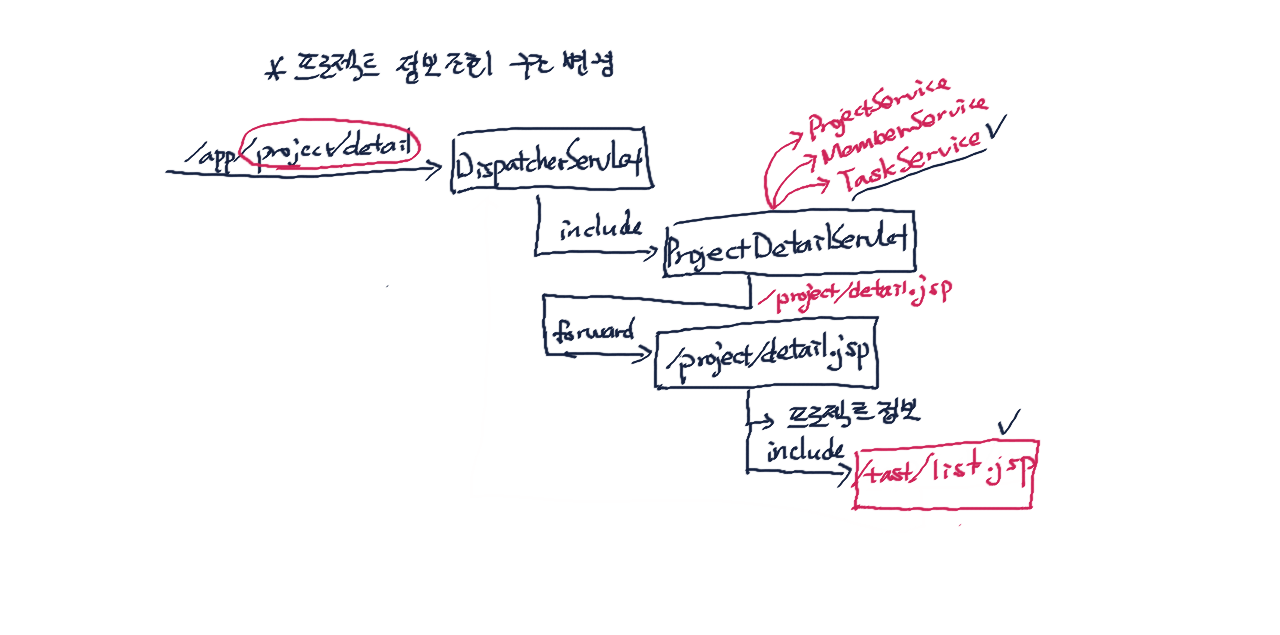 * 프로젝트 정보조회 구조 변경
/app/project/detail
DispatcherServlet
ProjectService
MemberService
TaskService ✓
include
ProjectDetailServlet
/project/detail.jsp
forward
/project/detail.jsp
프로젝트 정보
include
/tast/list.jsp ✓